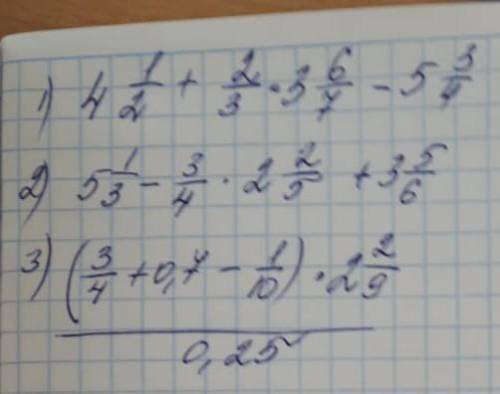 1) 4 1/2 + 2/3 · 3 6/7 - 5 3/4
2) 5 1/3 - 3/4 · 2 2/5 + 3 5/6
3) (3/4 + 0,7 - 1/10) · 2 2/9
0,25